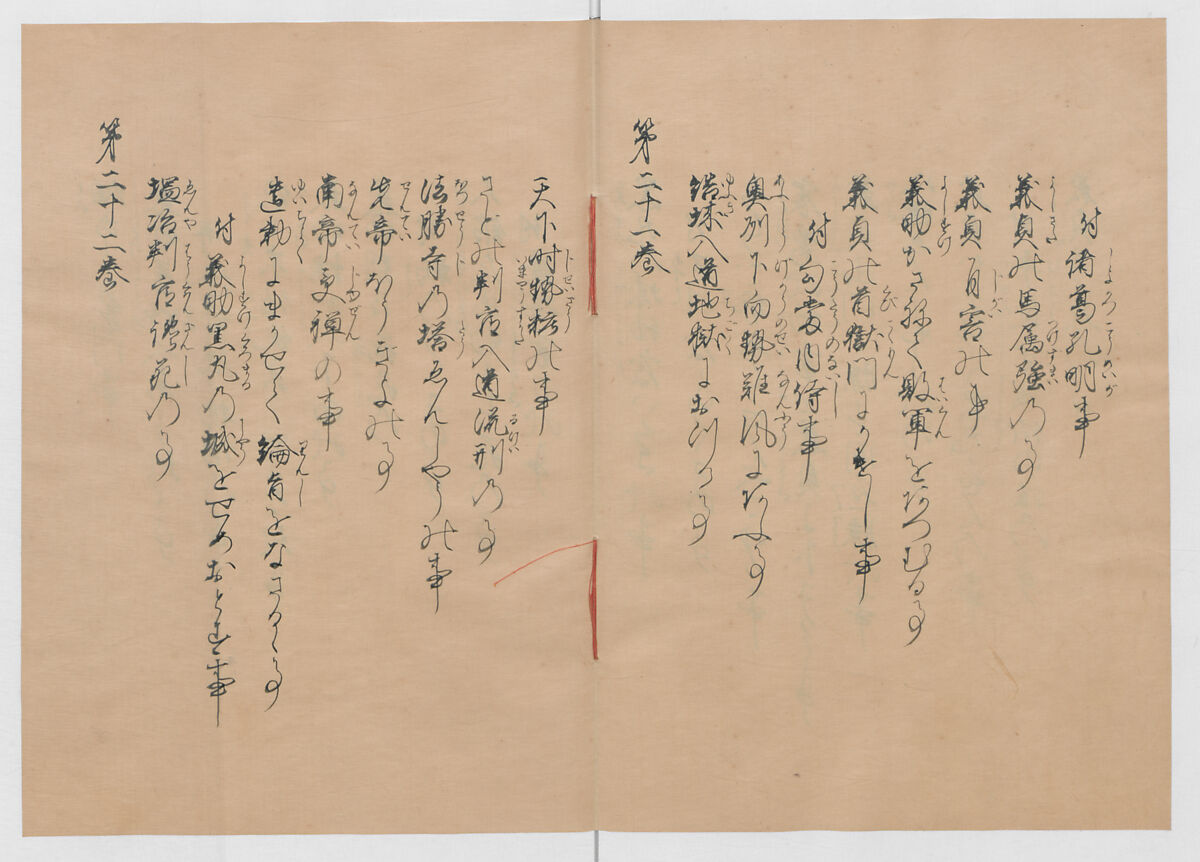 付 諸葛孔明事
義貞の馬属強の事
義貞自害の事
義助かさねて敗軍をあつむる事
義貞の首獄門にかけし事
付 勾当内侍事
奥州下向勢難風にあふ事
結城入道地獄におつる事
第二十一巻
天下時勢粧の事
さどの判官入道流刑の事
法勝寺の塔ゑんしやうの事
先帝ほうぎよの事
南帝受禅の事
遺勅にまかせて綸旨をなさるゝ事
付 義助黒丸の城をせめおとす事
塩冶判官讒死の事
第二十二巻